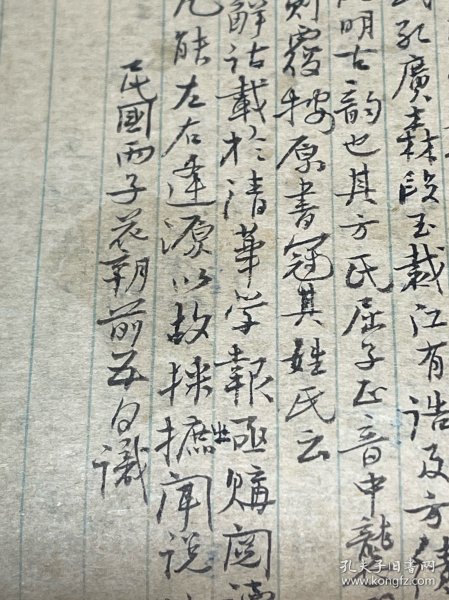 孔廣森段玉裁江有誥及方績
明古韵也其方氏屈子正音中龍
則覆按原書冠其姓氏云
解詁載於清華学報亟購閱
能左右逢源以故採摭聞說
民國丙子花朝前五日識
孔夫子旧书网
www.kongfz.com